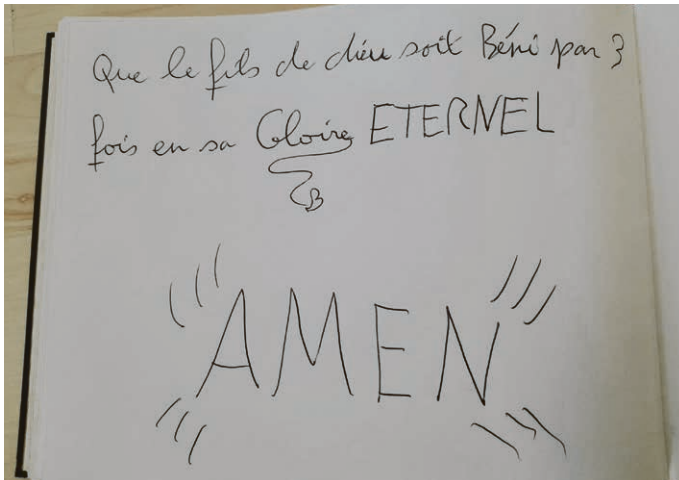 Que le fils de dieu soit Béni par 3
fois en sa Gloire ETERNEL
AMEN